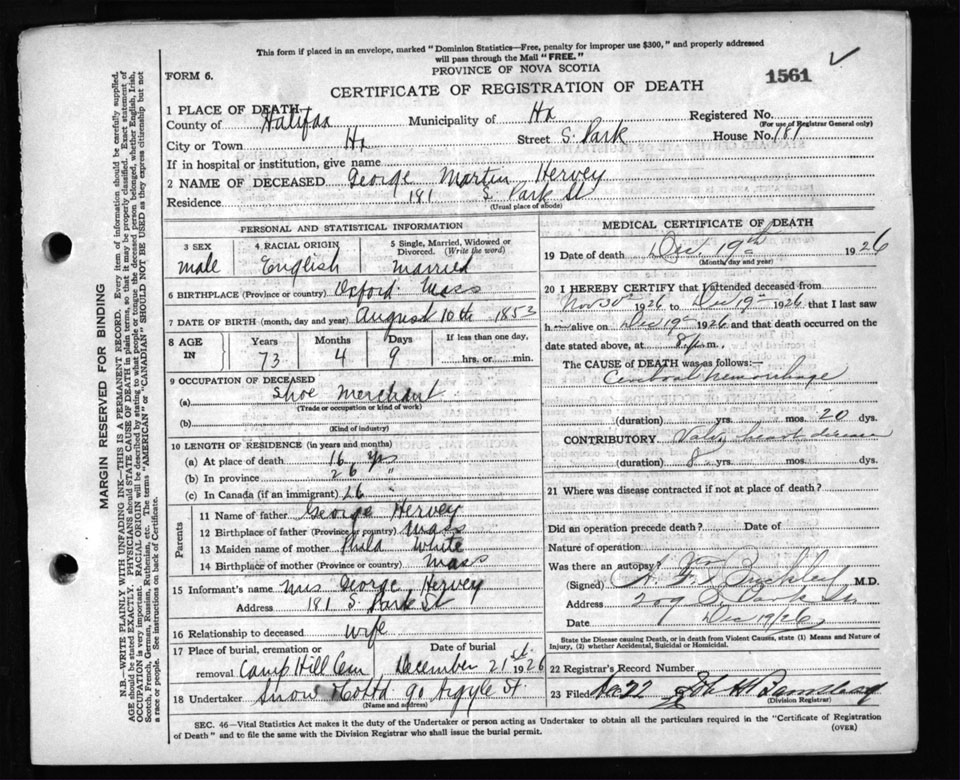 This form if placed in an envelope, marked "Dominion Statistics—Free, penalty for improper use $300," and properly addressed
will pass through the Mail "FREE."
PROVINCE OF NOVA SCOTIA
FORM 6.
1561
CERTIFICATE OF REGISTRATION OF DEATH
1 PLACE OF DEATH
County of Halifax Municipality of Hx Registered No.
(For use of Registrar General only)
City or Town Hx Street S. Park House No. 181
If in hospital or institution, give name
2 NAME OF DECEASED George Martin Hervey
Residence 181 S Park St
(Usual place of abode)
PERSONAL AND STATISTICAL INFORMATION
3 SEX 4 RACIAL ORIGIN 5 Single, Married, Widowed or Divorced. (Write the word)
male English Married
6 BIRTHPLACE (Province or country) Oxford Mass
7 DATE OF BIRTH (month, day and year) August 10th 1853
8 AGE IN Years Months Days If less than one day,
73 4 9 hrs. or min.
9 OCCUPATION OF DECEASED
(a) Shoe Merchant
(Trade or occupation or kind of work)
(b)
(Kind of industry)
10 LENGTH OF RESIDENCE (in years and months)
(a) At place of death 16 yrs
(b) In province 26 "
(c) In Canada (if an immigrant) 26 "
Parents
11 Name of father George Hervey
12 Birthplace of father (Province or country) Mass
13 Maiden name of mother White
14 Birthplace of mother (Province or country) Mass
15 Informant's name Mrs George Hervey
Address 181 S. Park St
16 Relationship to deceased wife
17 Place of burial, cremation or removal Camp Hill Cem
Date of burial December 21st 1926
18 Undertaker Snow & Co Ltd 90 Argyle St.
(Name and address)
MEDICAL CERTIFICATE OF DEATH
19 Date of death Dec 19th 1926
(Month, day and year)
20 I HEREBY CERTIFY that I attended deceased from
Nov 30th 1926 to Dec 19th 1926 that I last saw
h alive on Dec 19th 1926 and that death occurred on
date stated above, at 8 p.m.
The CAUSE of DEATH was as follows:—
Cerebral hemorrhage
(duration) yrs. mos. 20 dys.
CONTRIBUTORY heart disease
(duration) 8 yrs. mos. dys.
21 Where was disease contracted if not at place of death?
Did an operation precede death? Date of
Nature of operation
Was there an autopsy?
(Signed) Buckley M.D.
Address 209 S. Park St
Date Dec 19/26
State the Disease causing Death, or in death from Violent Causts, state (1) Means and Nature of
Injury, (2) whether Accidental, Suicidal or Homicidal.
22 Registrar's Record Number
23 Filed Dec 22
(Division Registrar)
SEC. 46—Vital Statistics Act makes it the duty of the Undertaker or person acting as Undertaker to obtain all the particulars required in the "Certificate of Registration
of Death" and to file the same with the Division Registrar who shall issue the burial permit.
(OVER)
MARGIN RESERVED FOR BINDING
N.B.—WRITE PLAINLY WITH UNFADING INK—THIS IS A PERMANENT RECORD. Every item of information should be carefully supplied.
AGE should be stated EXACTLY. PHYSICIANS should STATE CAUSE OF DEATH in plain terms, so that it may be properly classified. Exact statement of
OCCUPATION is very important. RACIAL ORIGIN will be described by stating to what people or tongue the deceased person belonged, whether English, Irish,
Scotch, French, German, Russian, Ruthenian, etc. The terms "AMERICAN" or "CANADIAN" SHOULD NOT BE USED as they express citizenship but not
a race or people. See instructions on back of Certificate.